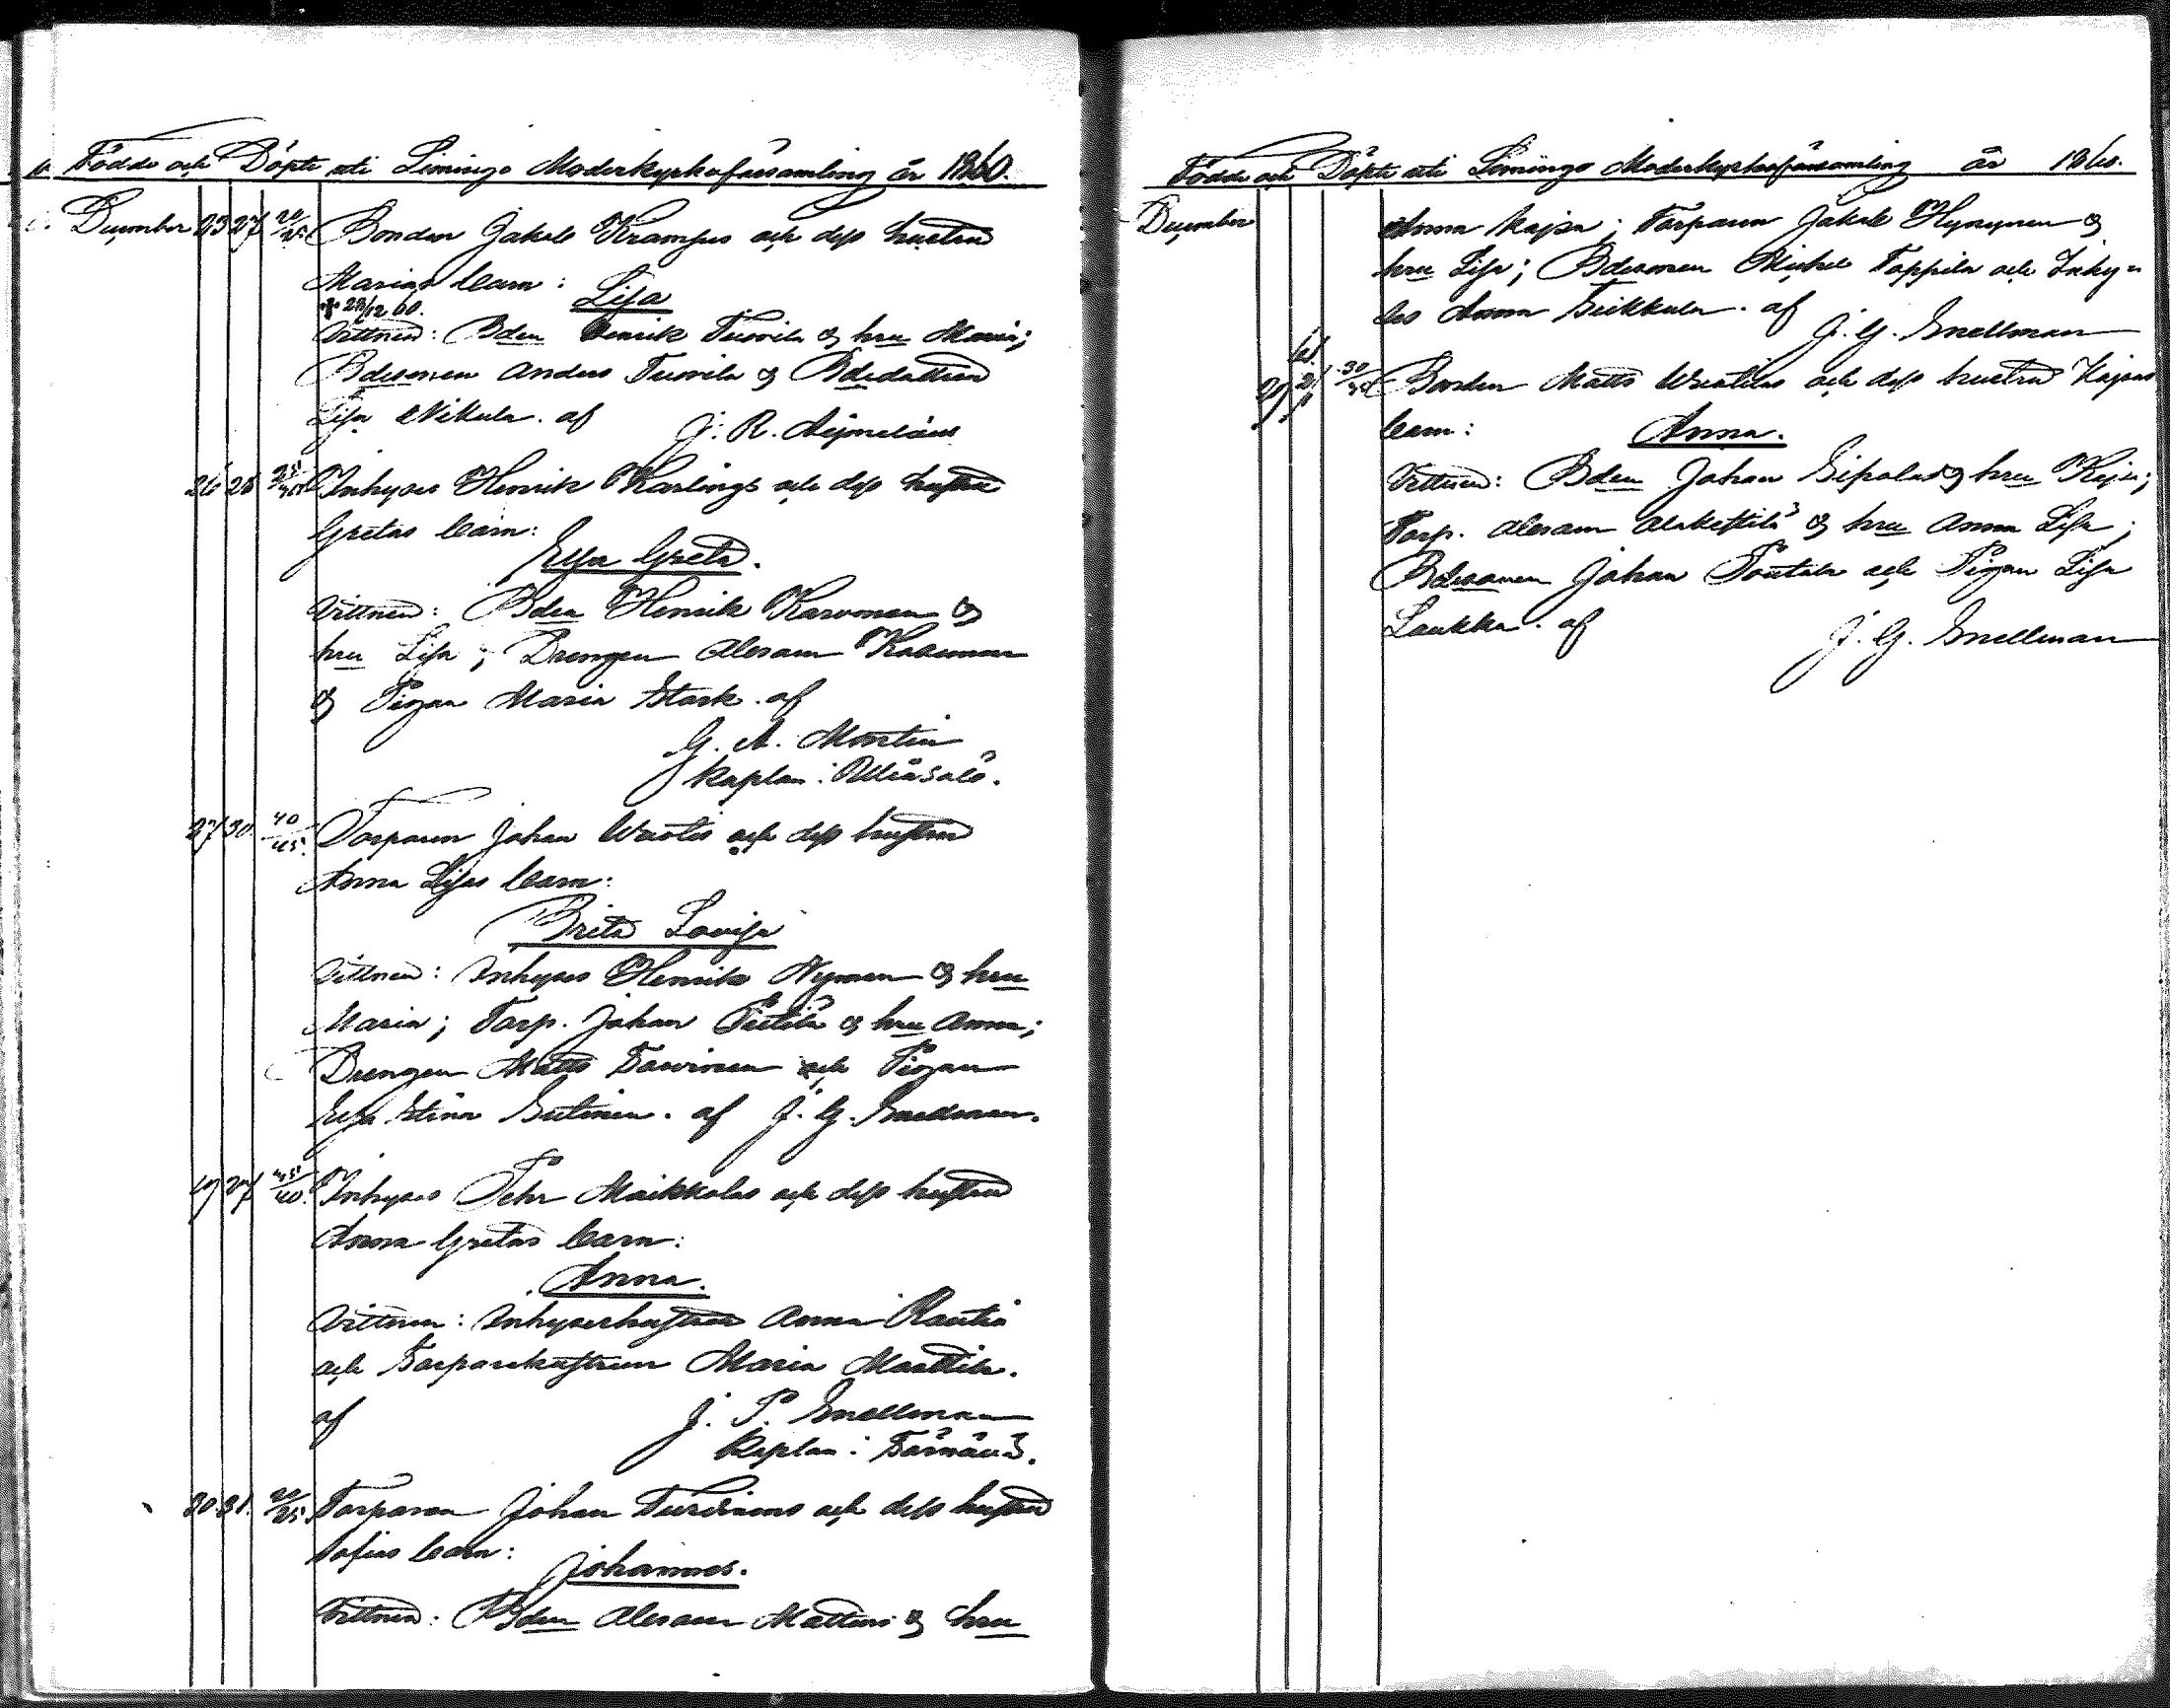 Födde och Döpte uti Limingo Moderkyrkoförsamling år 1860.
December 23 27 20/25 Bonden Jakob Krampus och dess hustru
Marias barn: Lisa
† 28/12 60.
Vittnen: Bden Henrik Tuovila & hru Maria;
Bdesonen Anders Tuovila & Bdedottren
Lisa Nikula. af J. R. Aijmelæus
26 28 Inhyses Henrik Karlings och dess hustru
Gretas barn:
Elsa Greta.
Vittnen: Bden Henrik Karvonen &
hru Lisa; Drengen Abram
& Pigan Maria Stark. af
G. A. Montin
Kaplan i
27 30. 40/45. Torparen Johan och dess hustru
Anna Lisas barn:
Brita Lovisa
Vittnen: Inhyses Henrik Nyman & hru
Maria; Torp. Johan Pietilä & hru Anna;
Drengen Matts och Pigan
Stina af J. G. Snellman.
19 27 Inhyses Pehr Maikkolas och dess hustru
Anna Gretas barn:
Anna.
Vittnen: Inhyseshustrun Anna Rautio
och Torparehustrun Maria Marttila.
af J. P. Snellman
Kaplan i
30 31. 20/25. Torparen Johan och dess hustru
Sofias barn:
Johannes.
Vittnen: Bden Abram & hru
Födde och Döpte uti Limingo Moderkyrkoförsamling år 1860.
December
Anna Kajsa; Torparen Jakob Hyvynen &
hru Lisa; Bdesonen Michel Toppila och Inhy=
ses Anna af J. G. Snellman
61.
29 Bonden Matts och dess hustru Kajsas
barn: Anna.
Vittnen: Bden Johan Sipola & hru Kajsa;
Torp. Abram Alakestilä & hru Anna Lisa;
Bdesonen Johan och Pigan Lisa
Laukka. af J. G. Snellman